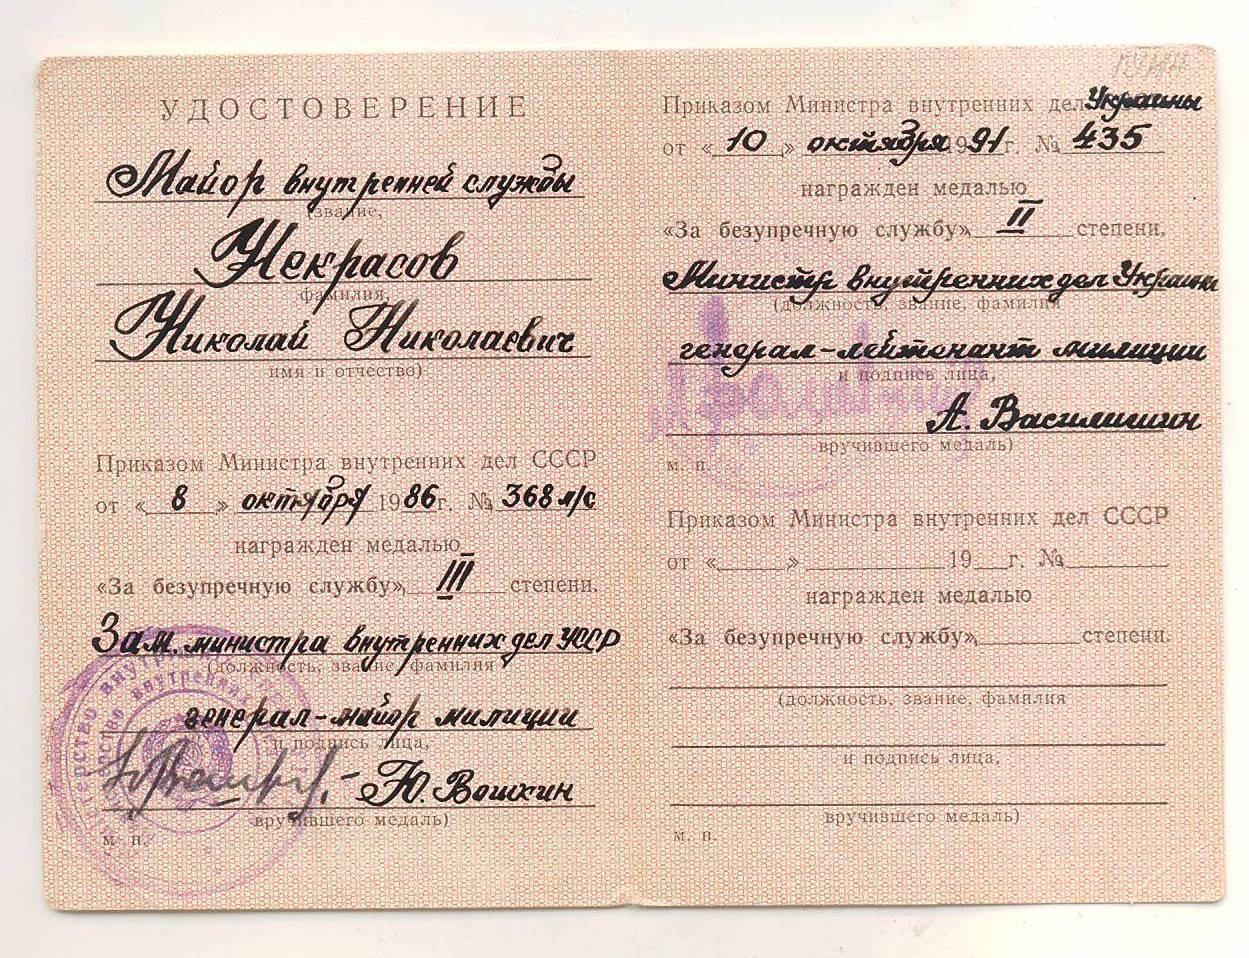 УДОСТОВЕРЕНИЕ
Майор внутренней службы
(звание,
Некрасов
фамилия,
Николай Николаевич
имя и отчество)
Приказом Министра внутренних дел СССР
от «8» октября 1986 г. № 368 л/с
награжден медалью
«За безупречную службу», III степени.
Зам. министра внутренних дел УССР
(должность, звание, фамилия
генерал-майор милиции
и подпись лица,
Ю. Вошкин
вручившего медаль)
м. п.
Приказом Министра внутренних дел Украины
от «10» октября 1991 г. № 435
награжден медалью
«За безупречную службу», II степени.
Министр внутренних дел Украины
(должность, звание, фамилия
генерал-лейтенант милиции
и подпись лица,
А. Василишин
вручившего медаль)
м. п.
Приказом Министра внутренних дел СССР
от «____» ________ 19__ г. № ______
награжден медалью
«За безупречную службу», ______ степени.
(должность, звание, фамилия
и подпись лица,
вручившего медаль)
м. п.